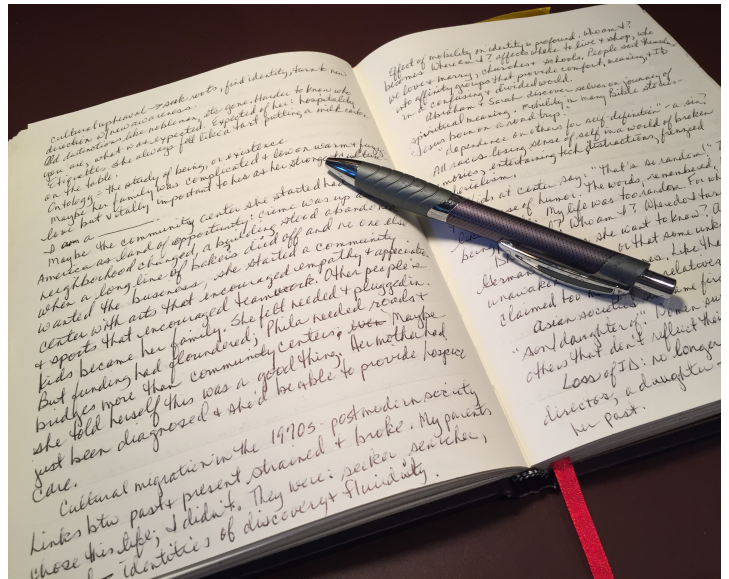 Cultural upheaval → seek roots, find identity, turn to new
direction & new awareness.
Old distinctions, like nobleman, etc gone. Harder to know who
you are, what was expected. Expected of her: hospitality,
Etiquette. She always felt like a tart putting a milk carton
on the table.
Ontology - the study of being, or existence.
Maybe her family was complicated & low on warm &
love but vitally important to her as her strongest
I am a
Maybe the community center she started had
America as land of opportunity: crime was up
neighborhood changed, a building stood abandoned
when a long line of bakers died off and no one else
wanted the business, she started a community
center with arts that encouraged empathy & appreciatn.
& sports that encouraged teamwork. Other people's
kids became her family. She felt needed & plugged in.
But funding had floundered; Phila needed roads &
bridges more than community centers, Maybe
she told herself this was a good thing. Her mother had
just been diagnosed & she'd be able to provide hospice
care.
Cultural migration in the 1970s - postmodern society
Links btw past & present strained & broke. My parents
chose this life; I didn't. They were: seeker, searcher,
identities of discovery & fluidity.
Effect of mobility on identity is profound. Who am I?
becomes Where am I? affects where to live & shop, who
we love & marry, churches & schools. People sort themselves
into affinity groups that provide comfort, meaning, & ID
in a confusing & divided world.
Abraham & Sarah discover selves on journey of
spiritual meaning. Mobility in many Bible stories -
Jesus born on a road trip.
"dependence on others for self definition" - a sin?
All races losing sense of self in a world of broken
memories, entertaining tech distractions, frenzied
materialism.
kids at center say: "That's so random!"
sense of humor. The words, remembered,
My life was too random. For
Who am I? Where do I
she want to know?
German that some
unaware Like the
claimed too relatives
Asian societies same
"son/daughter of." Women
others that don't reflect their
Loss of ID: no longer
director, a daughter -
her past.